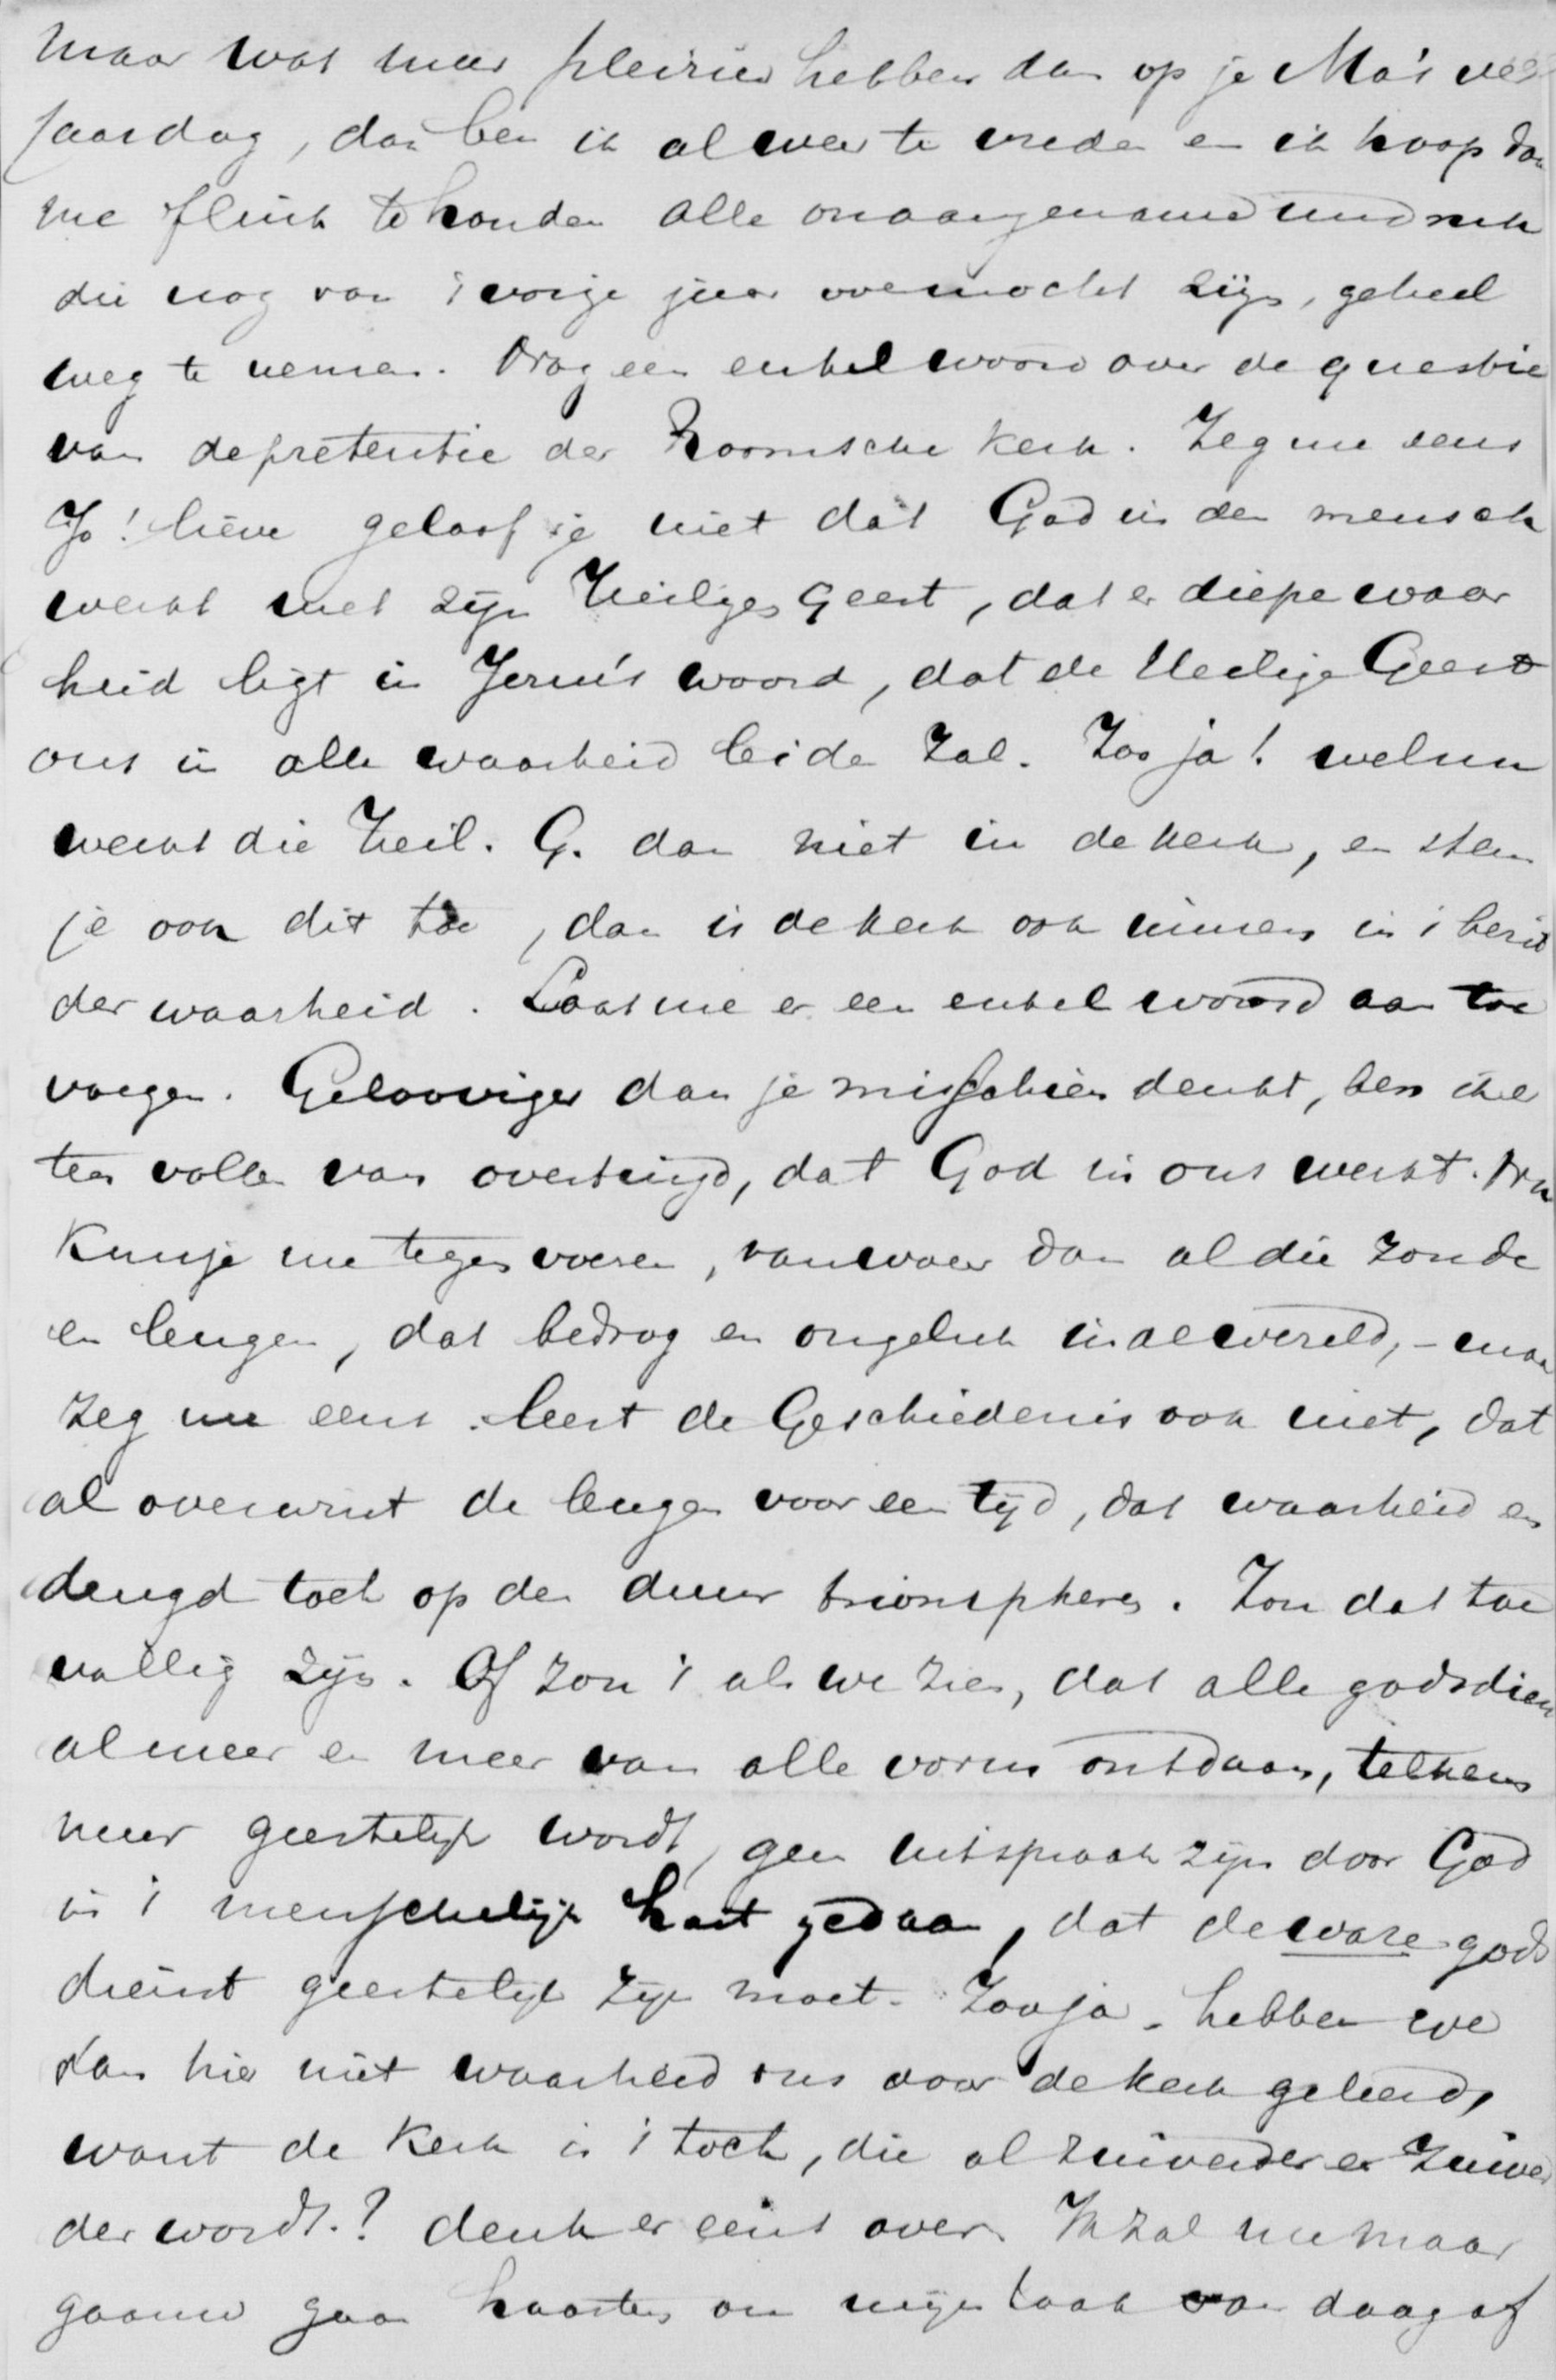 maar wat meer pleizier hebben dan op je Ma's ver
jaardag, dan ben ik al weer te vreden en ik hoop dan
me flink te houden alle onaangename indruk
die nog van 't vorige jaar overmocht zijn, geheel
weg te nemen. Nog een enkel woord over de questie
van de pretentie der Roomsche kerk. Zeg me eens
Jo! lieve geloof je niet dat God in den mensch
werkt met zijn Heiligen Geest, dat er diepe waar
heid ligt in Jezus's woord, dat de Heilige Geest
ons in alle waarheid leiden zal. Zoo ja! welnu
werkt die Heil. G. dan niet in de kerk, en stem
je ook dit toe, dan is de kerk ook immers in 't bezit
der waarheid. Laat me er een enkel woord aan toe
voegen. Gelooviger dan je misschien denkt, ben ik er
ten volle van overtuigd, dat God in ons werkt. Nu
kun je me tegen voeren, vanwaar dan al die zonde
en leugen, dat bedrog en ongeluk in de wereld, - maar
zeg me eens leert de Geschiedenis ook niet, dat
al overwint de leugen voor een tijd, dat waarheid en
deugd toch op den duur triompheren. Zou dat toe
vallig zijn. Of zou 't als we zien, dat alle godsdien
al meer en meer van alle vorm ontdaan, telkens
meer geestelijk wordt, geen uitspraak zijn door God
in 't menschelijk hart gedaan, dat de ware gods
dienst geestelijk zijn moet. Zoo ja, hebben we
dan hier niet waarheid ons door de kerk geleerd,
want de Kerk is 't toch, die al zuiverder en zuiver
der wordt.? denk er eens over. Ik zal me maar
gaauw gaan haasten om mijn taak van daag af